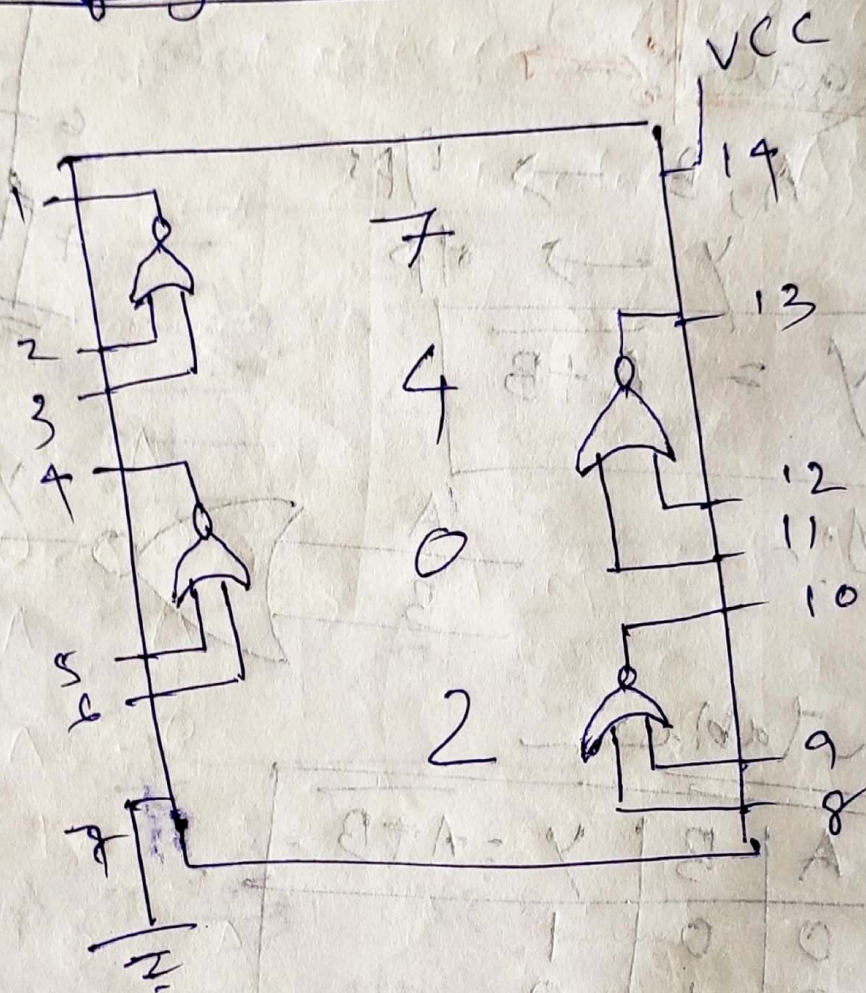 VCC
1
14
7
13
2
3
4
4
12
11
0
10
5
6
2
9
8
7